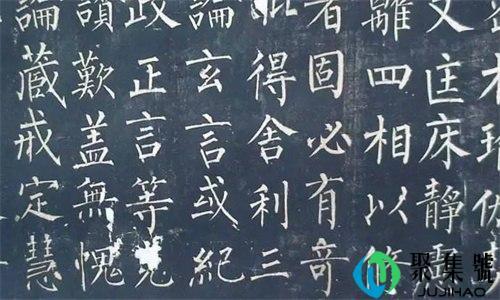 匡床靜
離四相以
者固必有奇
得舍利三
論玄言或紀
政正言等
讀歎蓋無愧
論藏戒定慧
聚集號
JUJIHAO